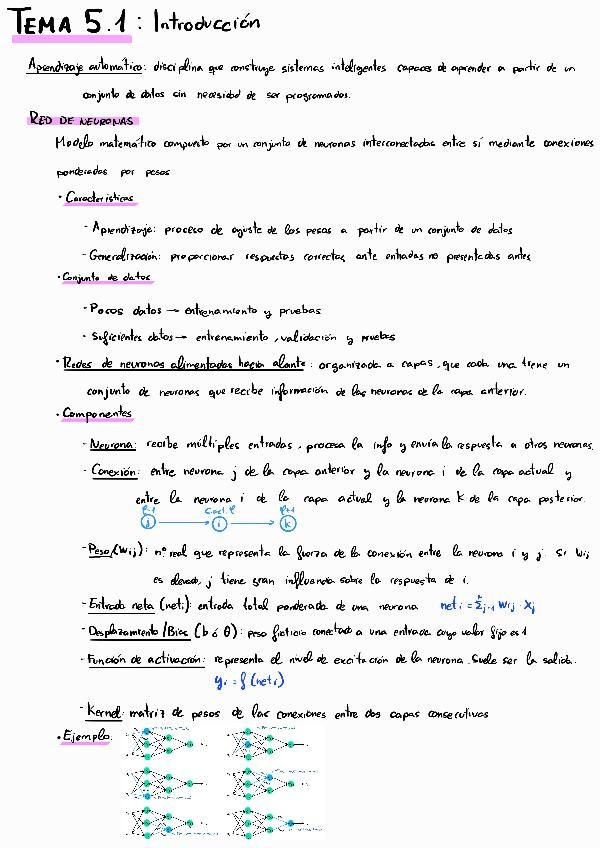 TEMA 5.1: Introducción
Aprendizaje automático: disciplina que construye sistemas inteligentes capaces de aprender a partir de un
conjunto de datos sin necesidad de ser programados.
RED DE NEURONAS
Modelo matemático compuesto por un conjunto de neuronas interconectadas entre sí mediante conexiones
ponderadas por pesos
· Características
- Aprendizaje: proceso de ajuste de los pesos a partir de un conjunto de datos
- Generalización: proporcionar respuestas correctas ante entradas no presentadas antes
· Conjunto de datos
- Pocos datos → entrenamiento y pruebas
- Suficientes datos → entrenamiento, validación y pruebas
· Redes de neuronas alimentadas hacia alante: organizada a capas, que cada una tiene un
conjunto de neuronas que recibe información de las neuronas de la capa anterior.
· Componentes
- Neurona: recibe múltiples entradas, procesa la info y envía la respuesta a otras neuronas.
- Conexión: entre neurona j de la capa anterior y la neurona i de la capa actual y
entre la neurona i de la capa actual y la neurona k de la capa posterior.
j i k
- Peso (wij): nº real que representa la fuerza de la conexión entre la neurona i y j. Si wij
es elevado, j tiene gran influencia sobre la respuesta de i.
- Entrada neta (neti): entrada total ponderada de una neurona neti = Σj=1 wij · xj
- Desplazamiento/Bias (b ó θ): peso ficticio conectado a una entrada cuyo valor fijo es 1
- Función de activación: representa el nivel de excitación de la neurona. Suele ser la salida.
yi = f(neti)
- Kernel: matriz de pesos de las conexiones entre dos capas consecutivas
· Ejemplo: